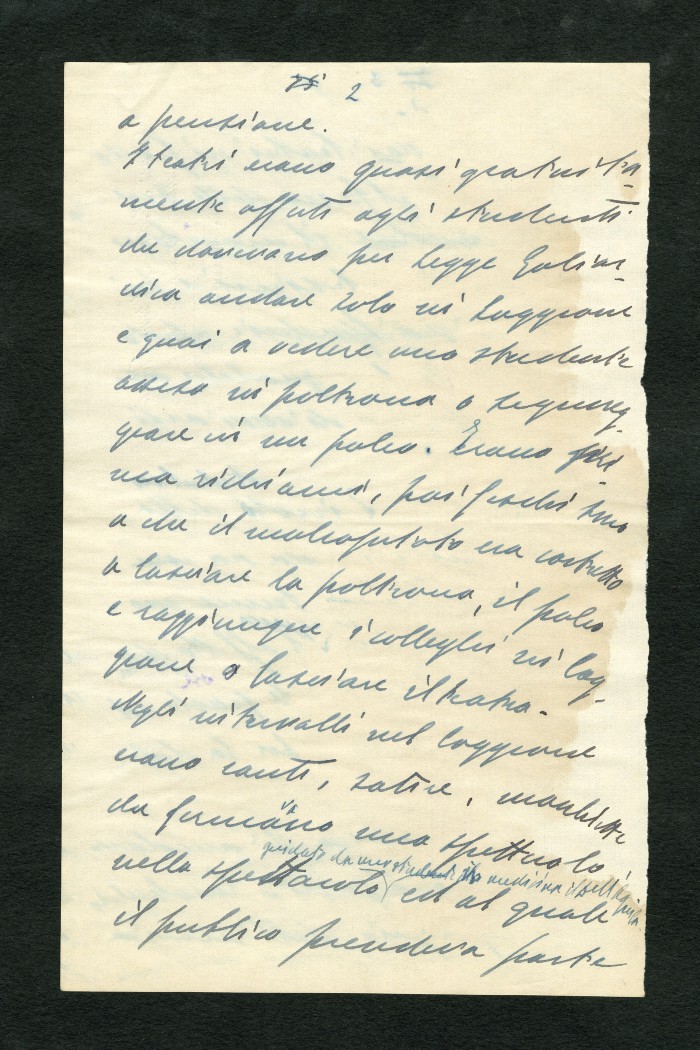 2
a pensione.
I teatri erano quasi gratuita-
mente offerti agli studenti
che dovevano per Legge Goliar-
dica andare solo in Loggione
e guai a vedere uno studente
assiso in poltrona o
in un palco. Erano pri
ma richiami, poi fischi sino
a che il malcapitato era costretto
a lasciare la poltrona, il palco
e raggiungere i colleghi in log-
gione o lasciare il teatro.
Negli intervalli nel loggione
erano canti, satire, macchiette
da uno spettacolo
guidato da uno studente in medicina
nello spettacolo ed al quale
il publico prendeva parte